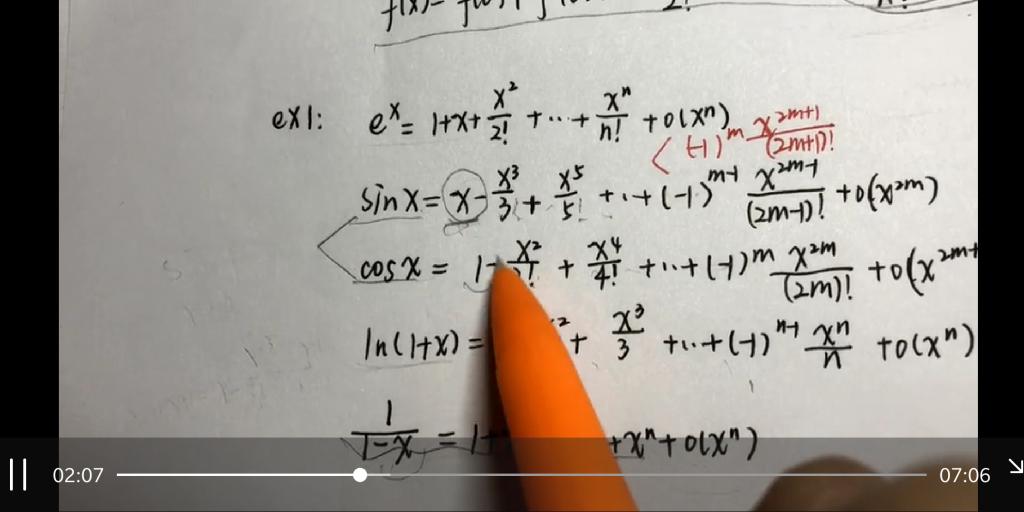 ex1: e^x = 1+x+ x^2/2! + ... + x^n/n! + o(x^n)
(-1)^m x^{2m+1}/(2m+1)!
sin x = x - x^3/3! + x^5/5! + ... + (-1)^{m-1} x^{2m-1}/(2m-1)! + o(x^{2m})
cos x = 1 - x^2/2! + x^4/4! + ... + (-1)^m x^{2m}/(2m)! + o(x^{2m+
ln(1+x) = + x^3/3 + ... + (-1)^{n-1} x^n/n + o(x^n)
1/(1-x) = 1+ +x^n + o(x^n)
02:07 07:06